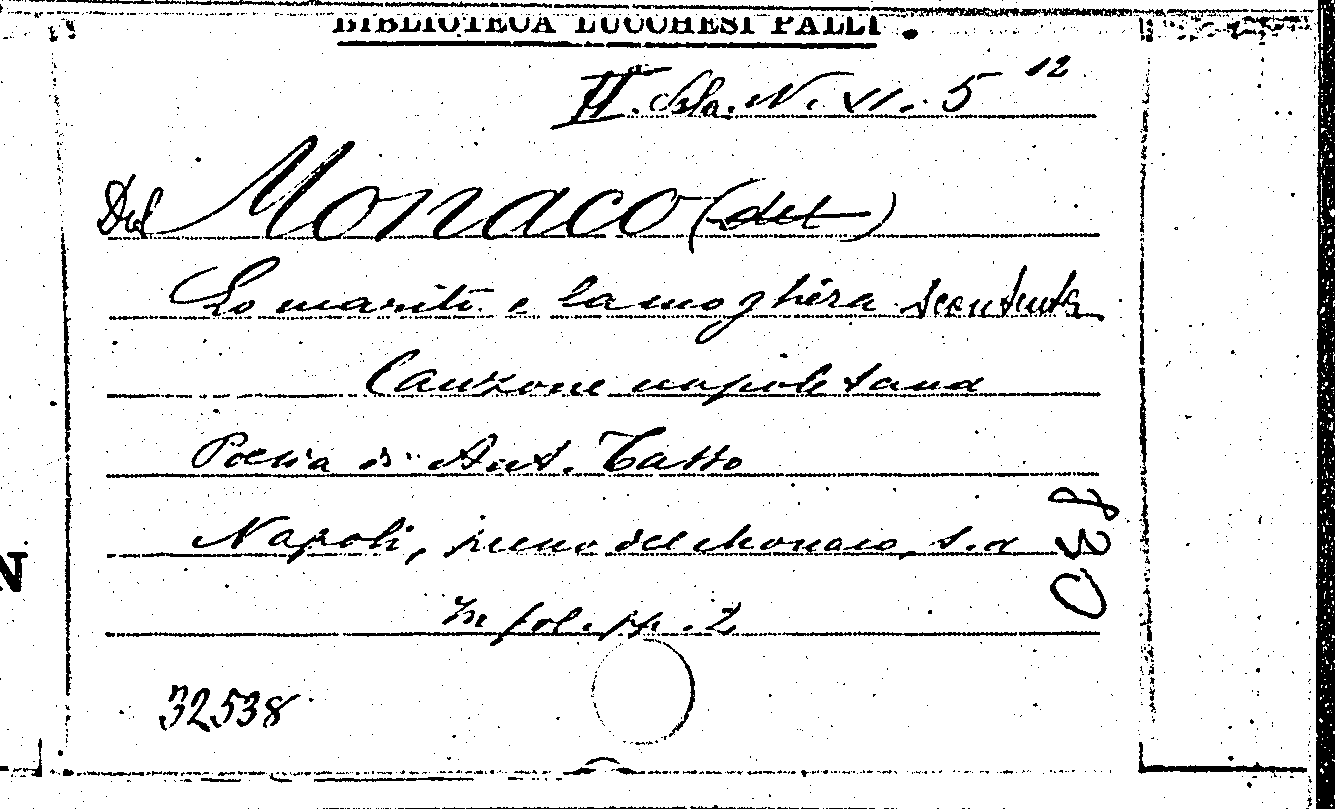 BIBLIOTECA LUCCHESI PALLI
II. Sala. N. VI. 5 12
Del Monaco (del)
Lo marito e la moghiera scontenta
Canzone napoletana
Poesia di Ant. Tasso
Napoli, presso del Monaco, s. d
In fol. pp. 2
32538
N